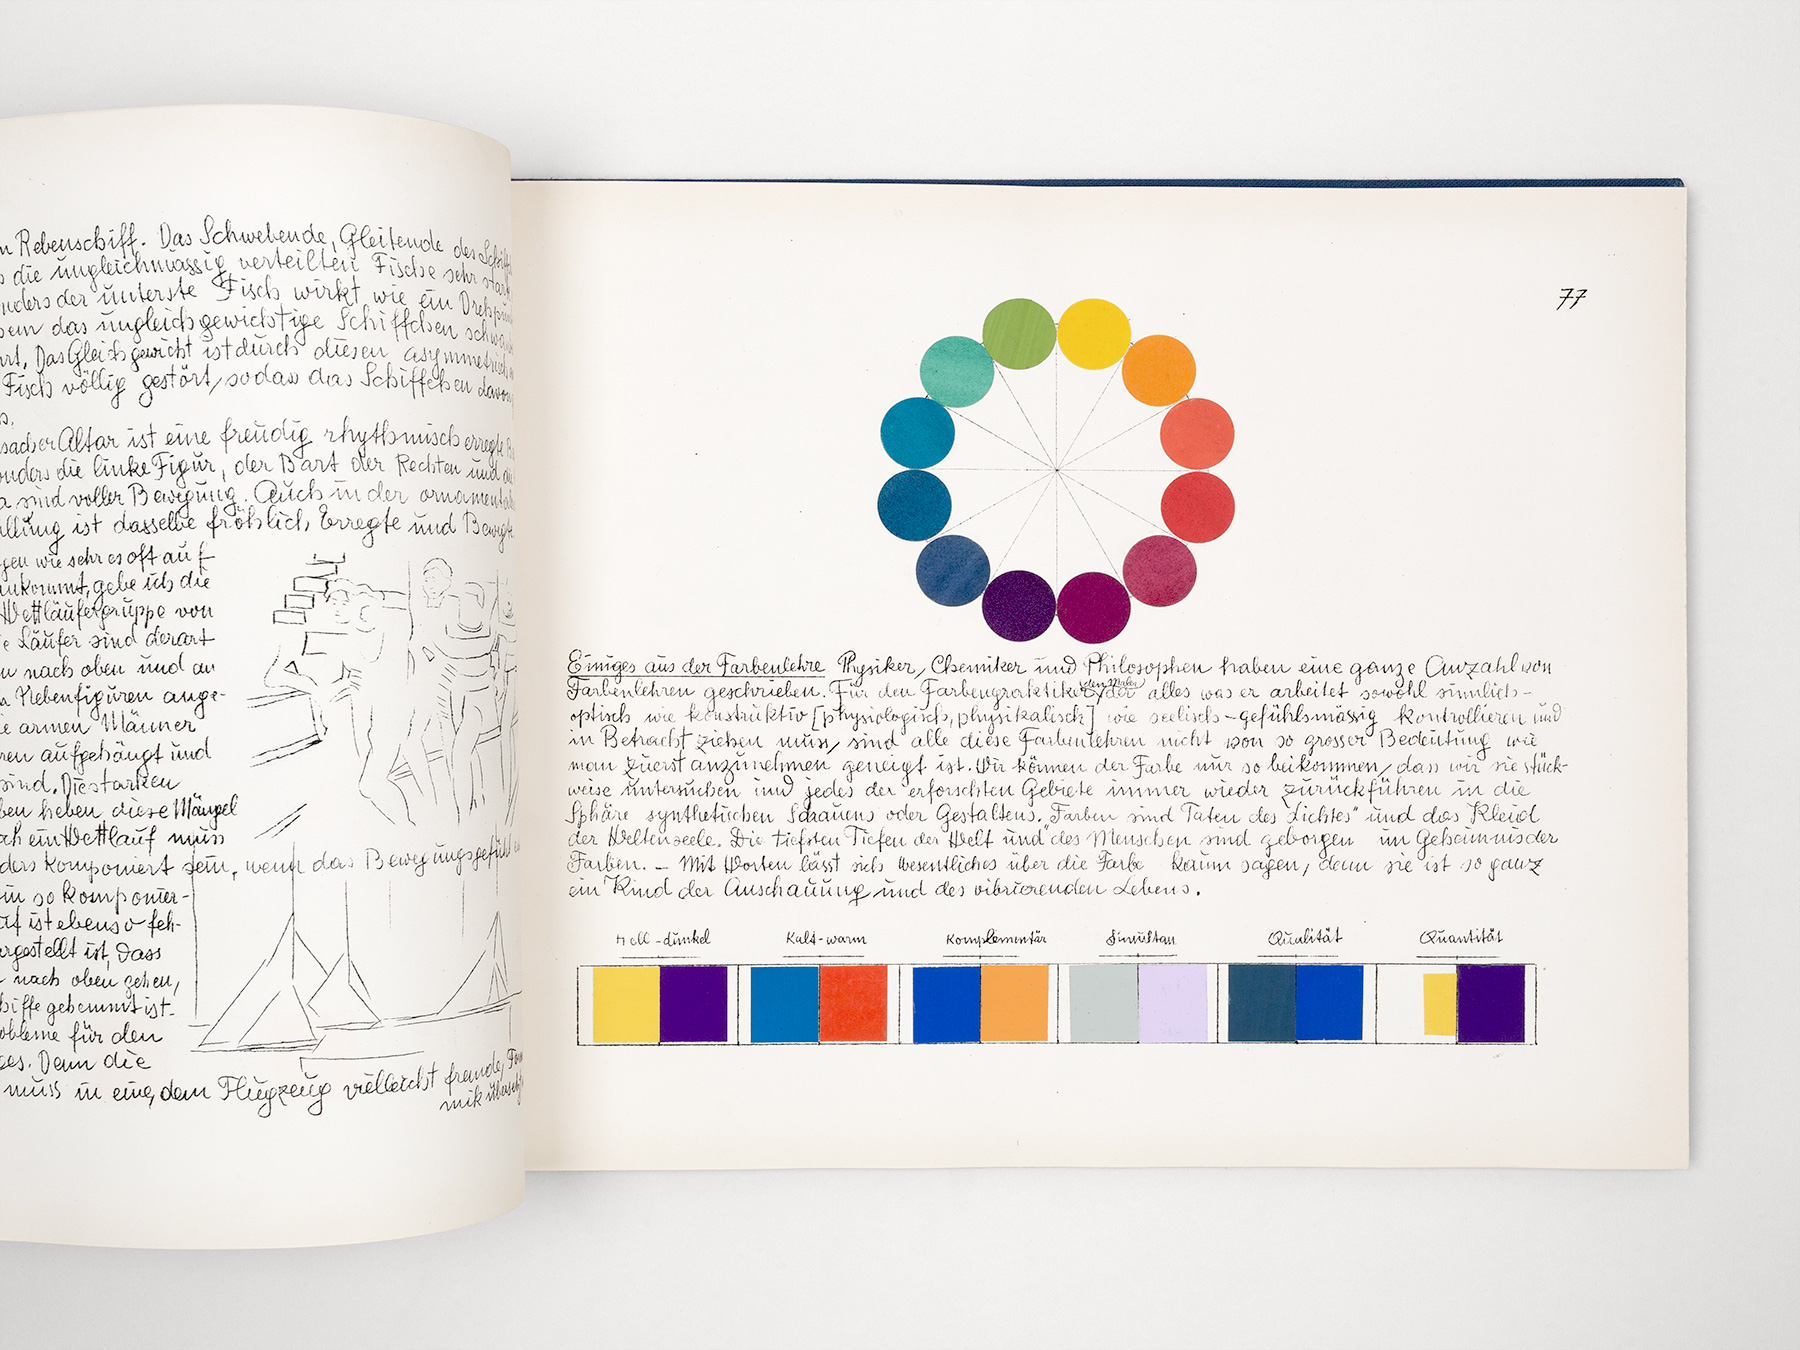 n Rebenschiff. Das Schwebende, Gleitende des
die ungleichmässig verteilten Fische sehr
nders der unterste Fisch wirkt wie ein
das ungleichgewichtige Schiffchen
Das Gleichgewicht ist durch diesen
Fisch völlig gestört, sodass das Schiffchen
s.
Altar ist eine freudig rhythmisch erregte
onders die linke Figur, der Bart der Rechten und
a sind voller Bewegung. Auch in der
llung ist dasselbe fröhlich Erregte und
gen wie sehr es oft auf
ankommt, gebe ich die
Wettläufergruppe von
e Läufer sind derart
n nach oben und an
n Nebenfiguren ange-
ie armen Männer
ren aufgehängt und
sind. Die starken
ben heben diese Mängel
ch ein Wettlauf muss
ders komponiert sein, wenn das Bewegungsgefühl
in so komponier-
uf ist ebenso feh-
rgestellt ist, dass
nach oben gehen,
hiffe gehemmt ist.
obleme für den
ges. Denn die
muss in eine, dem Flugzeug vielleicht fremde,
77
Einiges aus der Farbenlehre Physiker, Chemiker und Philosophen haben eine ganze Anzahl von
Farbenlehren geschrieben. Für den Farbenpraktiker, den Maler, der alles was er arbeitet sowohl sinnlich-
optisch wie konstruktiv [physiologisch, physikalisch] wie seelisch-gefühlsmässig kontrollieren und
in Betracht ziehen muss, sind alle diese Farbenlehren nicht von so grosser Bedeutung wie
man zuerst anzunehmen geneigt ist. Wir können der Farbe nur so beikommen, dass wir sie stück-
weise untersuchen und jedes der erforschten Gebiete immer wieder zurückführen in die
Sphäre synthetischen Schauens oder Gestaltens. Farben sind Taten des „Lichtes" und das Kleid
der Weltenseele. Die tiefsten Tiefen der Welt und des Menschen sind geborgen im Geheimnis der
Farben. — Mit Worten lässt sich wesentliches über die Farbe kaum sagen, denn sie ist so ganz
ein Kind der Anschauung und des vibrierenden Lebens.
Hell-dunkel Kalt-warm Komplementär Simultan Qualität Quantität